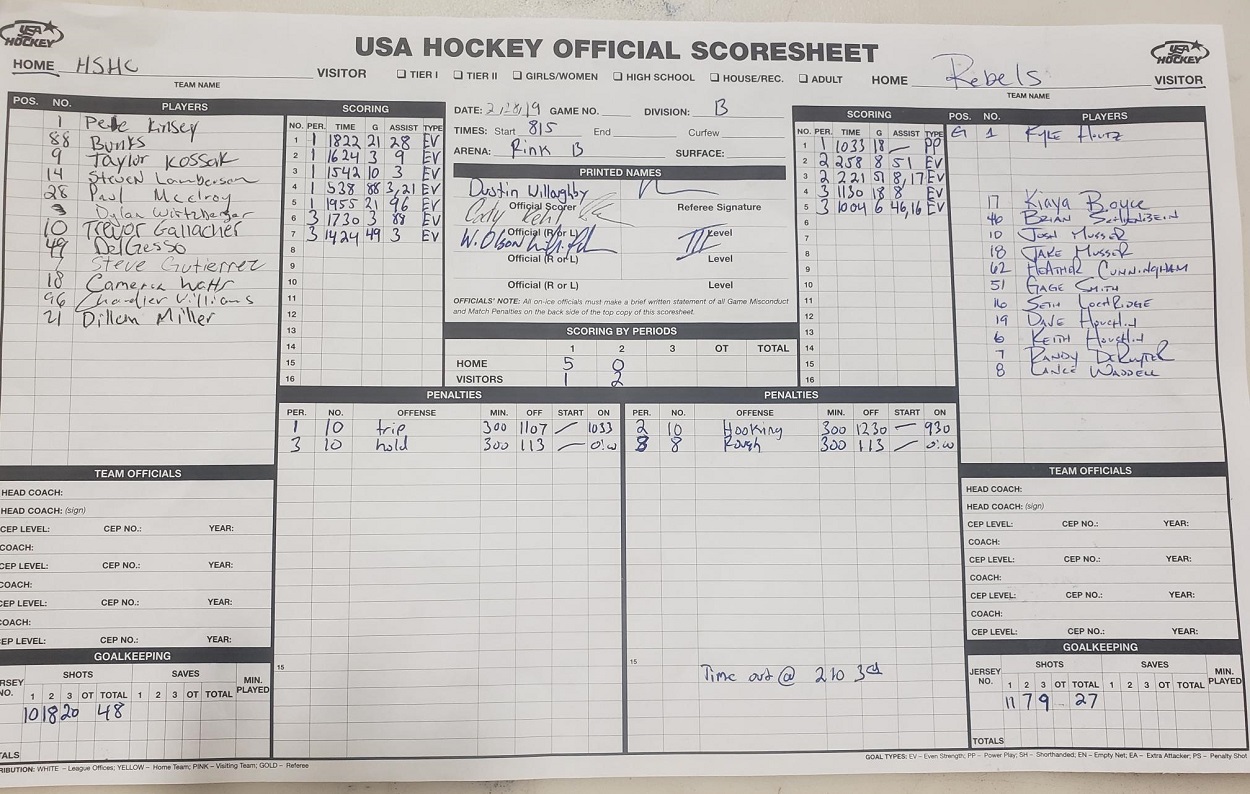 USA HOCKEY OFFICIAL SCORESHEET
USA HOCKEY
USA HOCKEY
HOME HSHC VISITOR
TEAM NAME
☐ TIER I ☐ TIER II ☐ GIRLS/WOMEN ☐ HIGH SCHOOL ☐ HOUSE/REC. ☐ ADULT
HOME Rebels VISITOR
TEAM NAME
POS. NO. PLAYERS
1 Pete Kinsey
88 Bunks
9 Taylor Kossak
14 Steven Lamberson
28 Paul McElroy
3 Dylan Wirtzberger
10 Trevor Gallacher
49 DelGesso
Steve Gutierrez
18 Cameren Watts
96 Chandler Villiams
21 Dillem Miller
SCORING
NO. PER. TIME G ASSIST TYPE
1 1 1822 21 28 EV
2 1 1624 3 9 EV
3 1 1542 10 3 EV
4 1 538 88 3,21 EV
5 1 1955 21 96 EV
6 3 1730 3 88 EV
7 3 1424 49 3 EV
8
9
10
11
12
13
14
15
16
DATE: GAME NO. DIVISION: B
TIMES: Start 815 End Curfew
ARENA: Rink B SURFACE:
PRINTED NAMES
Dustin Willoughby
Official Scorer Referee Signature
Official (R or L) Level
W. Olson III
Official (R or L) Level
Official (R or L) Level
OFFICIALS' NOTE: All on-ice officials must make a brief written statement of all Game Misconduct
and Match Penalties on the back side of the top copy of this scoresheet.
SCORING BY PERIODS
1 2 3 OT TOTAL
HOME 5 0
VISITORS 1 2
SCORING
NO. PER. TIME G ASSIST TYPE
1 1 1033 18 — PP
2 2 258 8 51 EV
3 2 221 51 8,17 EV
4 3 1130 18 8 EV
5 3 1004 6 46,16 EV
6
7
8
9
10
11
12
13
14
15
16
POS. NO. PLAYERS
G 1 Kyle Houtz
17 Kiaya Boyce
46 Brian
10 Josh Musser
18 Jake Musser
62 Heather Cunningham
51 Gage Smith
16 Seth Lochridge
19 Dave Houchin
6 Keith Houchin
7 Randy DeRuyter
8 Lance Waddell
PENALTIES
PER. NO. OFFENSE MIN. OFF START ON
1 10 trip 300 1107 — 1033
3 10 hold 300 113 — 0:00
15
PENALTIES
PER. NO. OFFENSE MIN. OFF START ON
2 10 Hooking 300 1230 — 930
8 Rough 300 113 — 0:00
15
Time out @ 210 3rd
TEAM OFFICIALS
HEAD COACH:
HEAD COACH: (sign)
CEP LEVEL: CEP NO.: YEAR:
COACH:
CEP LEVEL: CEP NO.: YEAR:
COACH:
CEP LEVEL: CEP NO.: YEAR:
COACH:
CEP LEVEL: CEP NO.: YEAR:
GOALKEEPING
JERSEY NO. SHOTS SAVES MIN. PLAYED
1 2 3 OT TOTAL 1 2 3 OT TOTAL
10 18 20 48
TEAM OFFICIALS
HEAD COACH:
HEAD COACH: (sign)
CEP LEVEL: CEP NO.: YEAR:
COACH:
CEP LEVEL: CEP NO.: YEAR:
COACH:
CEP LEVEL: CEP NO.: YEAR:
COACH:
CEP LEVEL: CEP NO.: YEAR:
GOALKEEPING
JERSEY NO. SHOTS SAVES MIN. PLAYED
1 2 3 OT TOTAL 1 2 3 OT TOTAL
11 7 9 27
TOTALS
WHITE – League Offices; YELLOW – Home Team; PINK – Visiting Team; GOLD – Referee
GOAL TYPES: EV – Even Strength; PP – Power Play; SH – Shorthanded; EN – Empty Net; EA – Extra Attacker; PS – Penalty Shot